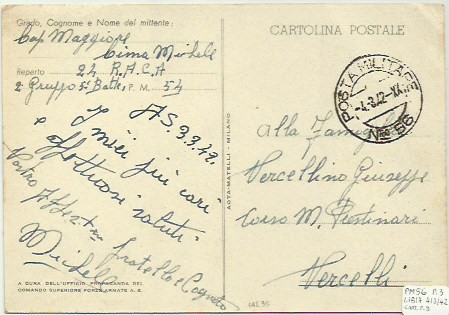 Grado, Cognome e Nome del mittente:
Cap Maggiore
Cima Michele
Reparto 24 R.A.C.A
2 Gruppo 5 Batt. P. M. 54
A.S. 3.3.42.
I miei più cari
e affettuosi saluti
Vostro Aff
fratello e Cognato
Michele
A CURA DELL'UFFICIO PROPAGANDA DEL
COMANDO SUPERIORE FORZE ARMATE A. S.
AGTA-MATELLI - MILANO
CARTOLINA POSTALE
POSTA MILITARE
-4.3.42-XX
No 56
Alla Famiglia
Vercellino Giuseppe
Corso M. Prestinari
Vercelli
PM 56 P.3
LIBIA 413/42